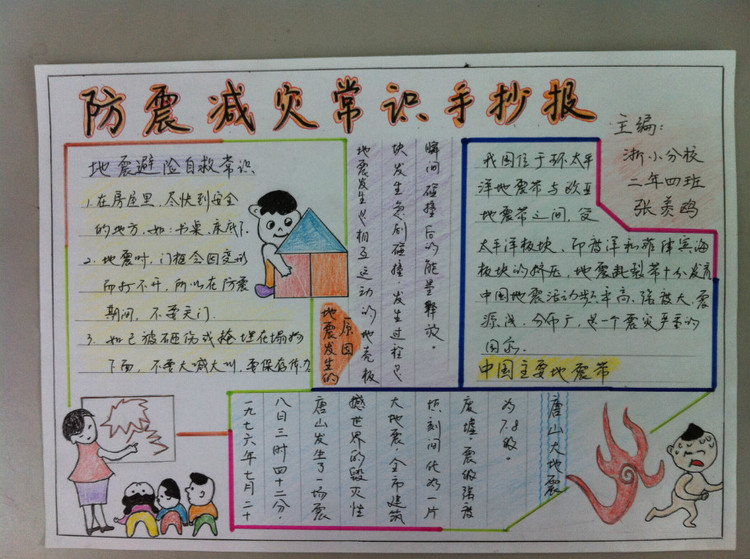 防震减灾常识手抄报
主编:
浙小分校
二年四班
张美鸥
地震避险自救常识
1.在房屋里,尽快到安全
的地方,如:书桌、床底下.
2.地震时,门框会因变形
而打不开,所以在防震
期间,不要关门.
3.如已被砸伤或掩埋在塌物
下面,不要大喊大叫,要保存体力
地震发生的
原因
地震发生是相互运动的地壳板
块发生急剧碰撞,发生过程是
瞬间碰撞后的能量释放
我国位于环太平
洋地震带与欧亚
地震带之间,受
太平洋板块、印度洋和菲律宾海
板块的挤压,地震断裂带十分发育
中国地震活动频率高、强度大、震
源浅、分布广,是一个震灾严重的
国家.
中国主要地震带
唐山大地震
一九七六年七月二十
八日三时四十二分,
唐山发生了一场震
撼世界的毁灭性
大地震,全市建筑
顷刻间化为一片
废墟.震级强度
为7.8级.